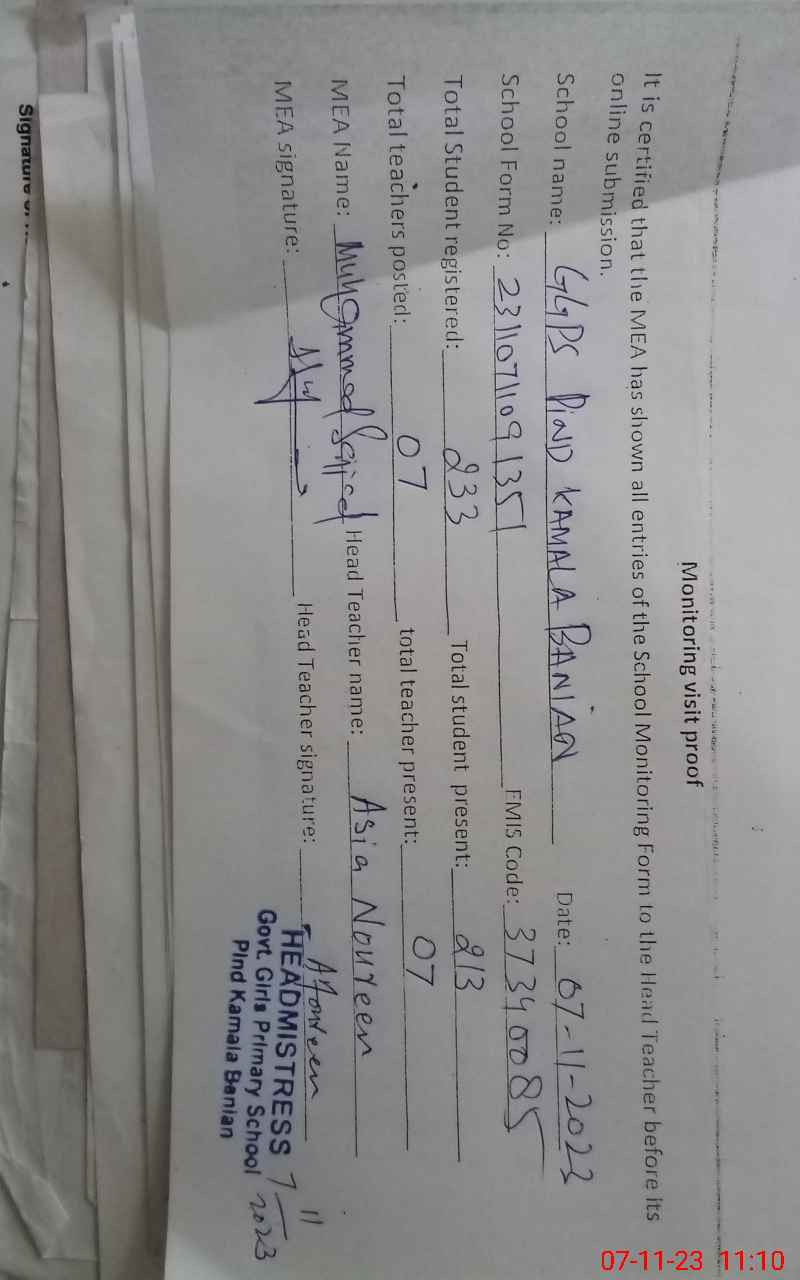 Monitoring visit proof
It is certified that the MEA has shown all entries of the School Monitoring Form to the Head Teacher before its
online submission.
School name: GGPS PIND KAMALA BANIAN Date: 07-11-2023
School Form No: 23110711091351 EMIS Code: 37340085
Total Student registered: 233 Total student present: 213
Total teachers posted: 07 total teacher present: 07
MEA Name: Muhammad Sajjad Head Teacher name: Asia Noureen
MEA signature: Head Teacher signature: ANoureen
HEADMISTRESS
Govt. Girls Primary School
Pind Kamala Banian
7/11 2023
Signature
07-11-23 11:10